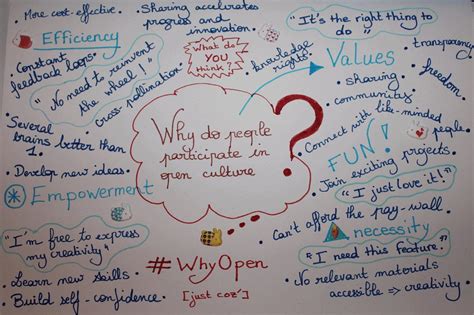 • More cost-effective
• Sharing accelerates
progress and
innovation
Efficiency
• Constant
feedback loops
"No need to reinvent
the wheel!"
• cross-pollination
• Several
brains better than
1.
• Develop new ideas
What do
YOU
think?
• knowledge
rights
"It's the right thing to
do"
Values
• transparency
• freedom
• sharing
• community
• Connect with like-minded
people
Why do people
participate in
open culture
?
FUN!
• Join exciting projects
"I just love it!"
Empowerment
"I'm free to express
my creativity"
• Learn new skills
• Build self-confidence
#WhyOpen
[just coz']
• Can't afford the pay-wall
necessity
"I need this feature"
• No relevant materials
accessible => creativity